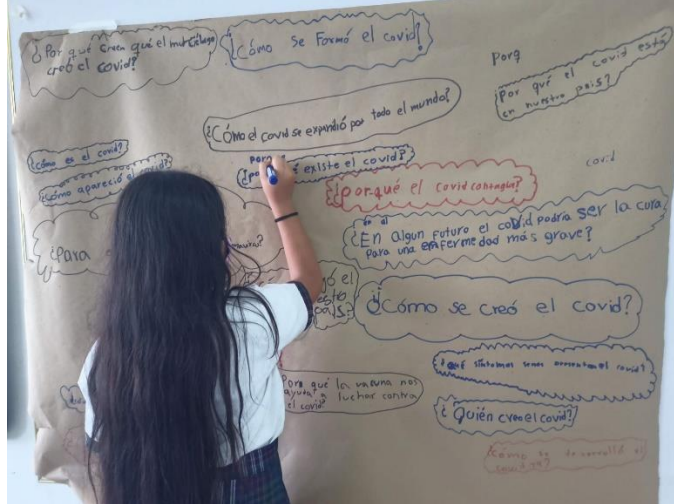 ¿Por qué creen qué el murciélago
creó el covid?
¿Cómo se Formó el covid?
Porq
Por qué el covid está
en nuestro país?
¿Cómo el covid se expandió por todo el mundo?
¿cómo es el covid?
¿Cómo apareció el covid?
porq
existe el covid?
¿porqué el covid contagia?
covid
¿Para
en el
¿En algun futuro el covid podria ser la cura
para una enfermedad más grave?
el
¿Cómo se creó el covid?
¿qué síntomas
covid?
Por qué la vacuna nos
ayuda a luchar contra
el covid?
¿Quién creo el covid?
¿Cómo se desarrolló el